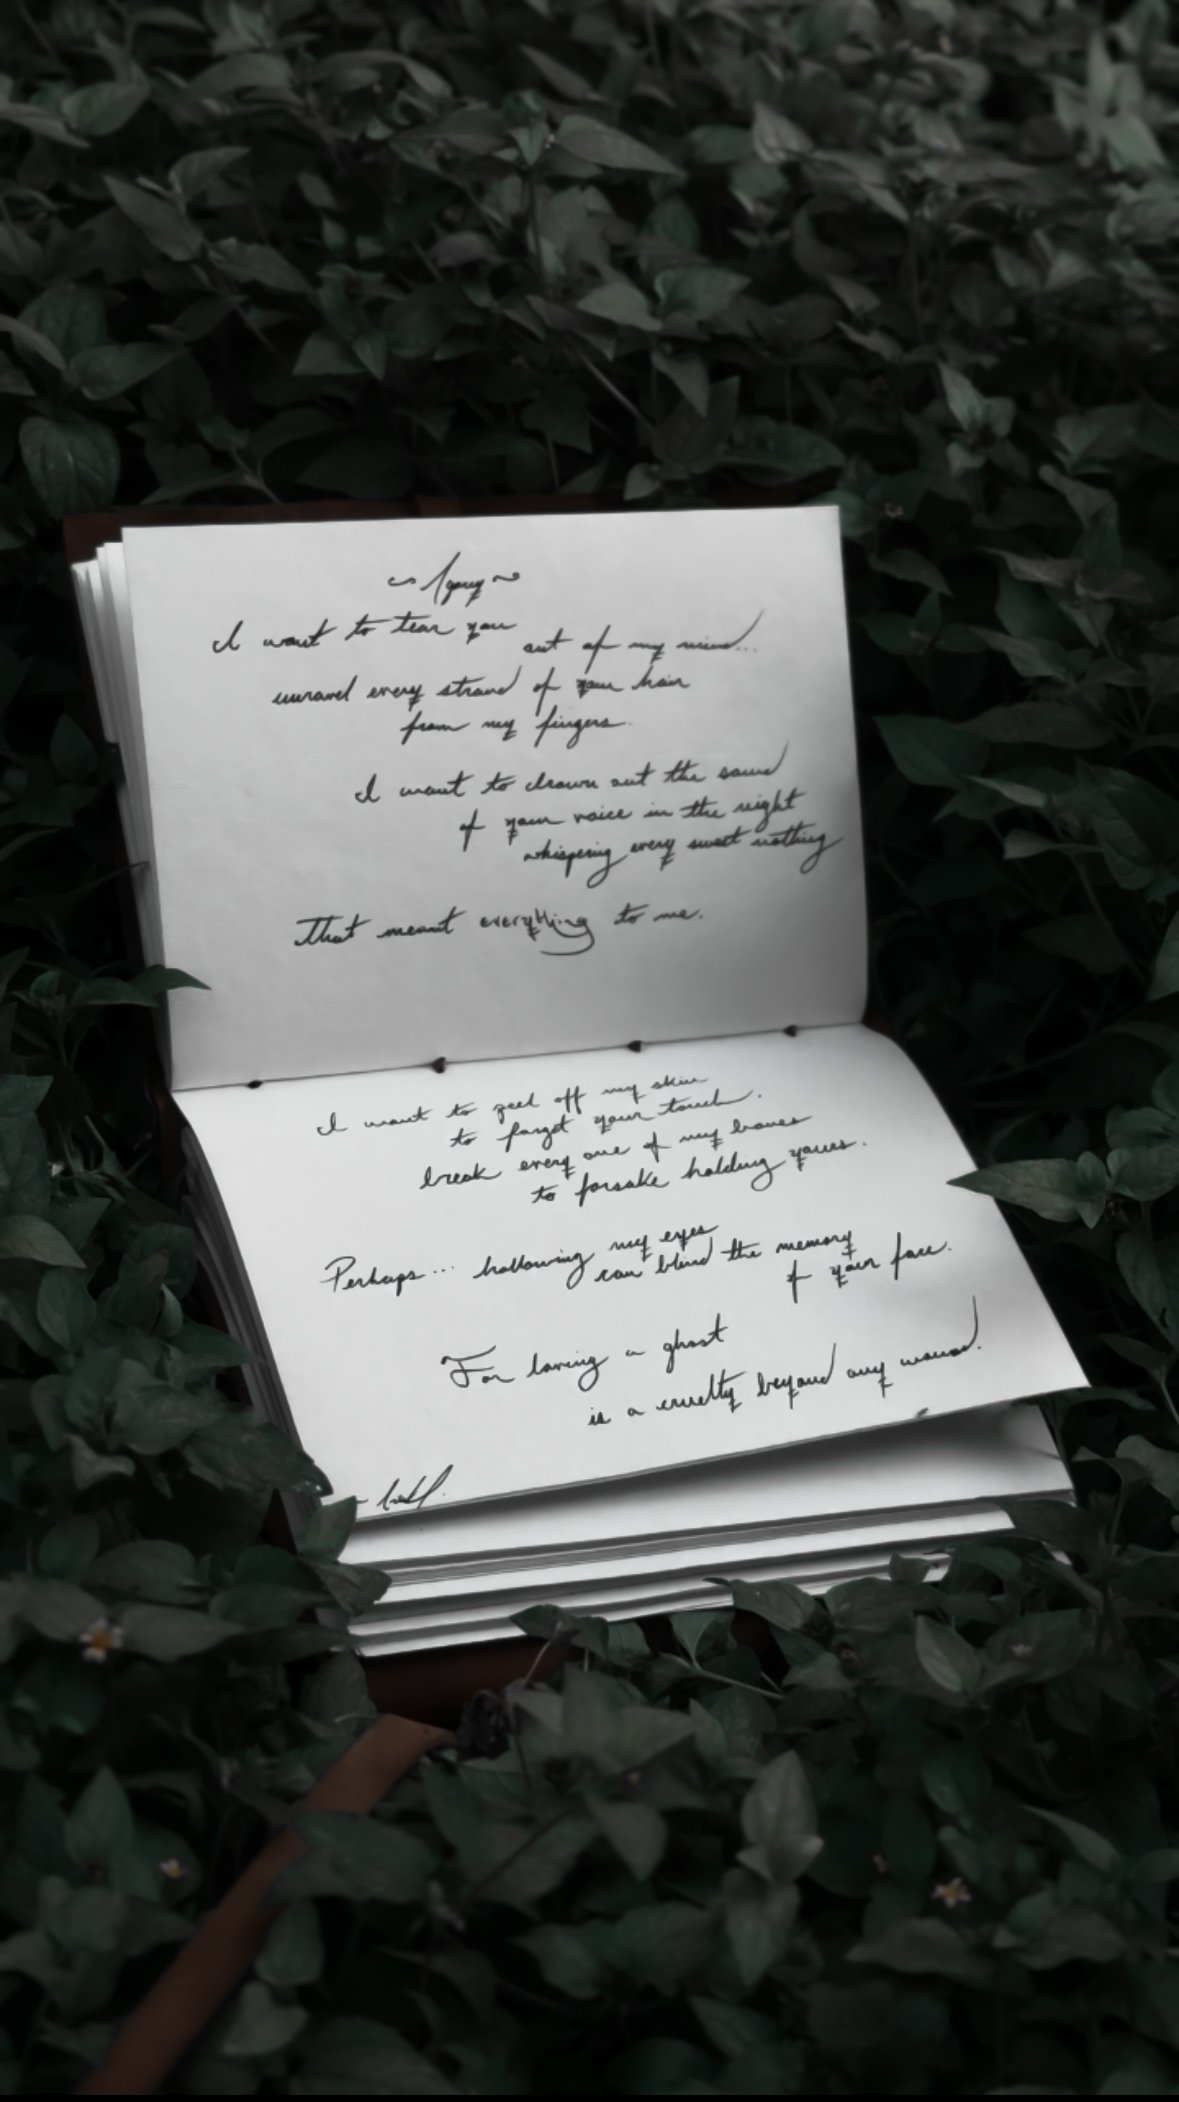 ~ Agony ~
I want to tear you
out of my mind...
unravel every strand of your hair
from my fingers.
I want to drown out the sound
of your voice in the night
whispering every sweet nothing
That meant everything to me.
I want to peel off my skin
to forget your touch.
break every one of my bones
to forsake holding yours.
Perhaps... hollowing my eyes
can blind the memory
of your face.
For loving a ghost
is a cruelty beyond any wound.